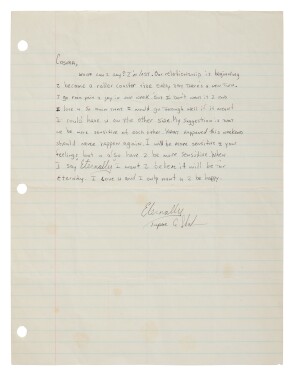 What can I say? I'm lost. Our relationship is beginning
2 become a roller coaster ride. Every day takes a new turn.
I go from pain 2 joy in one week. But I don't want 2 lose
love u so much that I would go through hell if it meant
I could have u on the other side. My suggestion is that
we be more sensitive 2 each other. What happened this weekend
should never happen again. I will be more sensitive 2 your
feelings but u also have 2 be more sensitive. When
I say Eternally I want 2 believe it will be for
eternity. I love u and I only want u 2 be happy.
Eternally